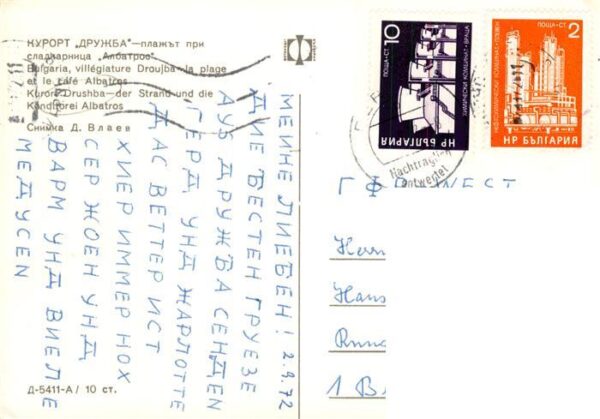 КУРОРТ „ДРУЖБА“—плажът при
сладкарница „Албатрос“
Bulgaria, villégiature Droujba-la plage
et le café Albatros
Kurort Drushba—der Strand und die
Konditorei Albatros
Снимка Д. Влаев
МЕИНЕ ЛИЕБЕН! 2.9.72
ДИЕ БЕСТЕН ГРУЕЗЕ
АУБ ДРУЖБА СЕНДЕН
ГЕРД УНД ЖАРЛОТТЕ
ДАС ВЕТТЕР ИСТ
ХИЕР ИММЕР НОХ
СЕР ЖОЕН УНД
ВАРМ УНД ВИЕЛЕ
МЕДУСЕН
Д-5411-А / 10 ст.
10 ПОЩА·СТ.
ХИМИЧЕСКИ КОМБИНАТ·ВРАЦА
НР БЪЛГАРИЯ
ПОЩА·СТ 2
НЕФТОХИМИЧЕСКИ КОМБИНАТ·ПЛЕВЕН
НР БЪЛГАРИЯ
Nachträglich
entwertet
ГФР WEST
Herrn
Hans
1 B